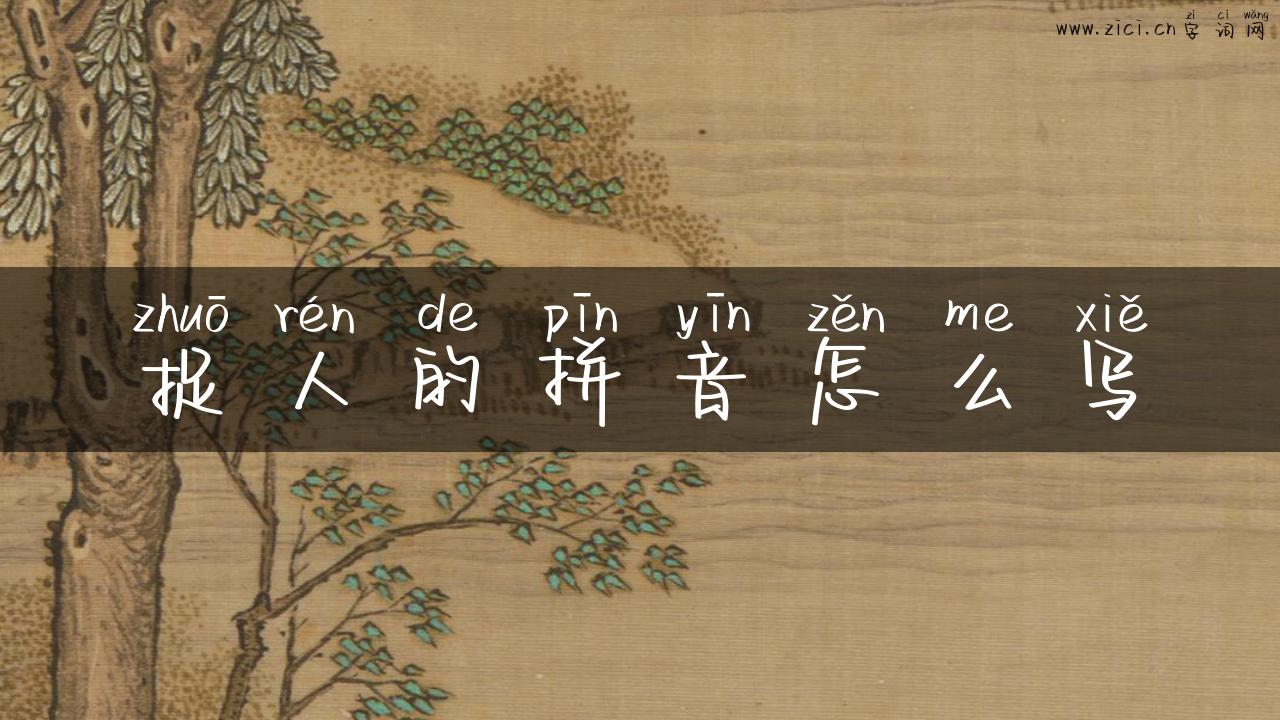 zì cí wǎng
www.zici.cn 字词网
zhuō rén de pīn yīn zěn me xiě
捉人的拼音怎么写